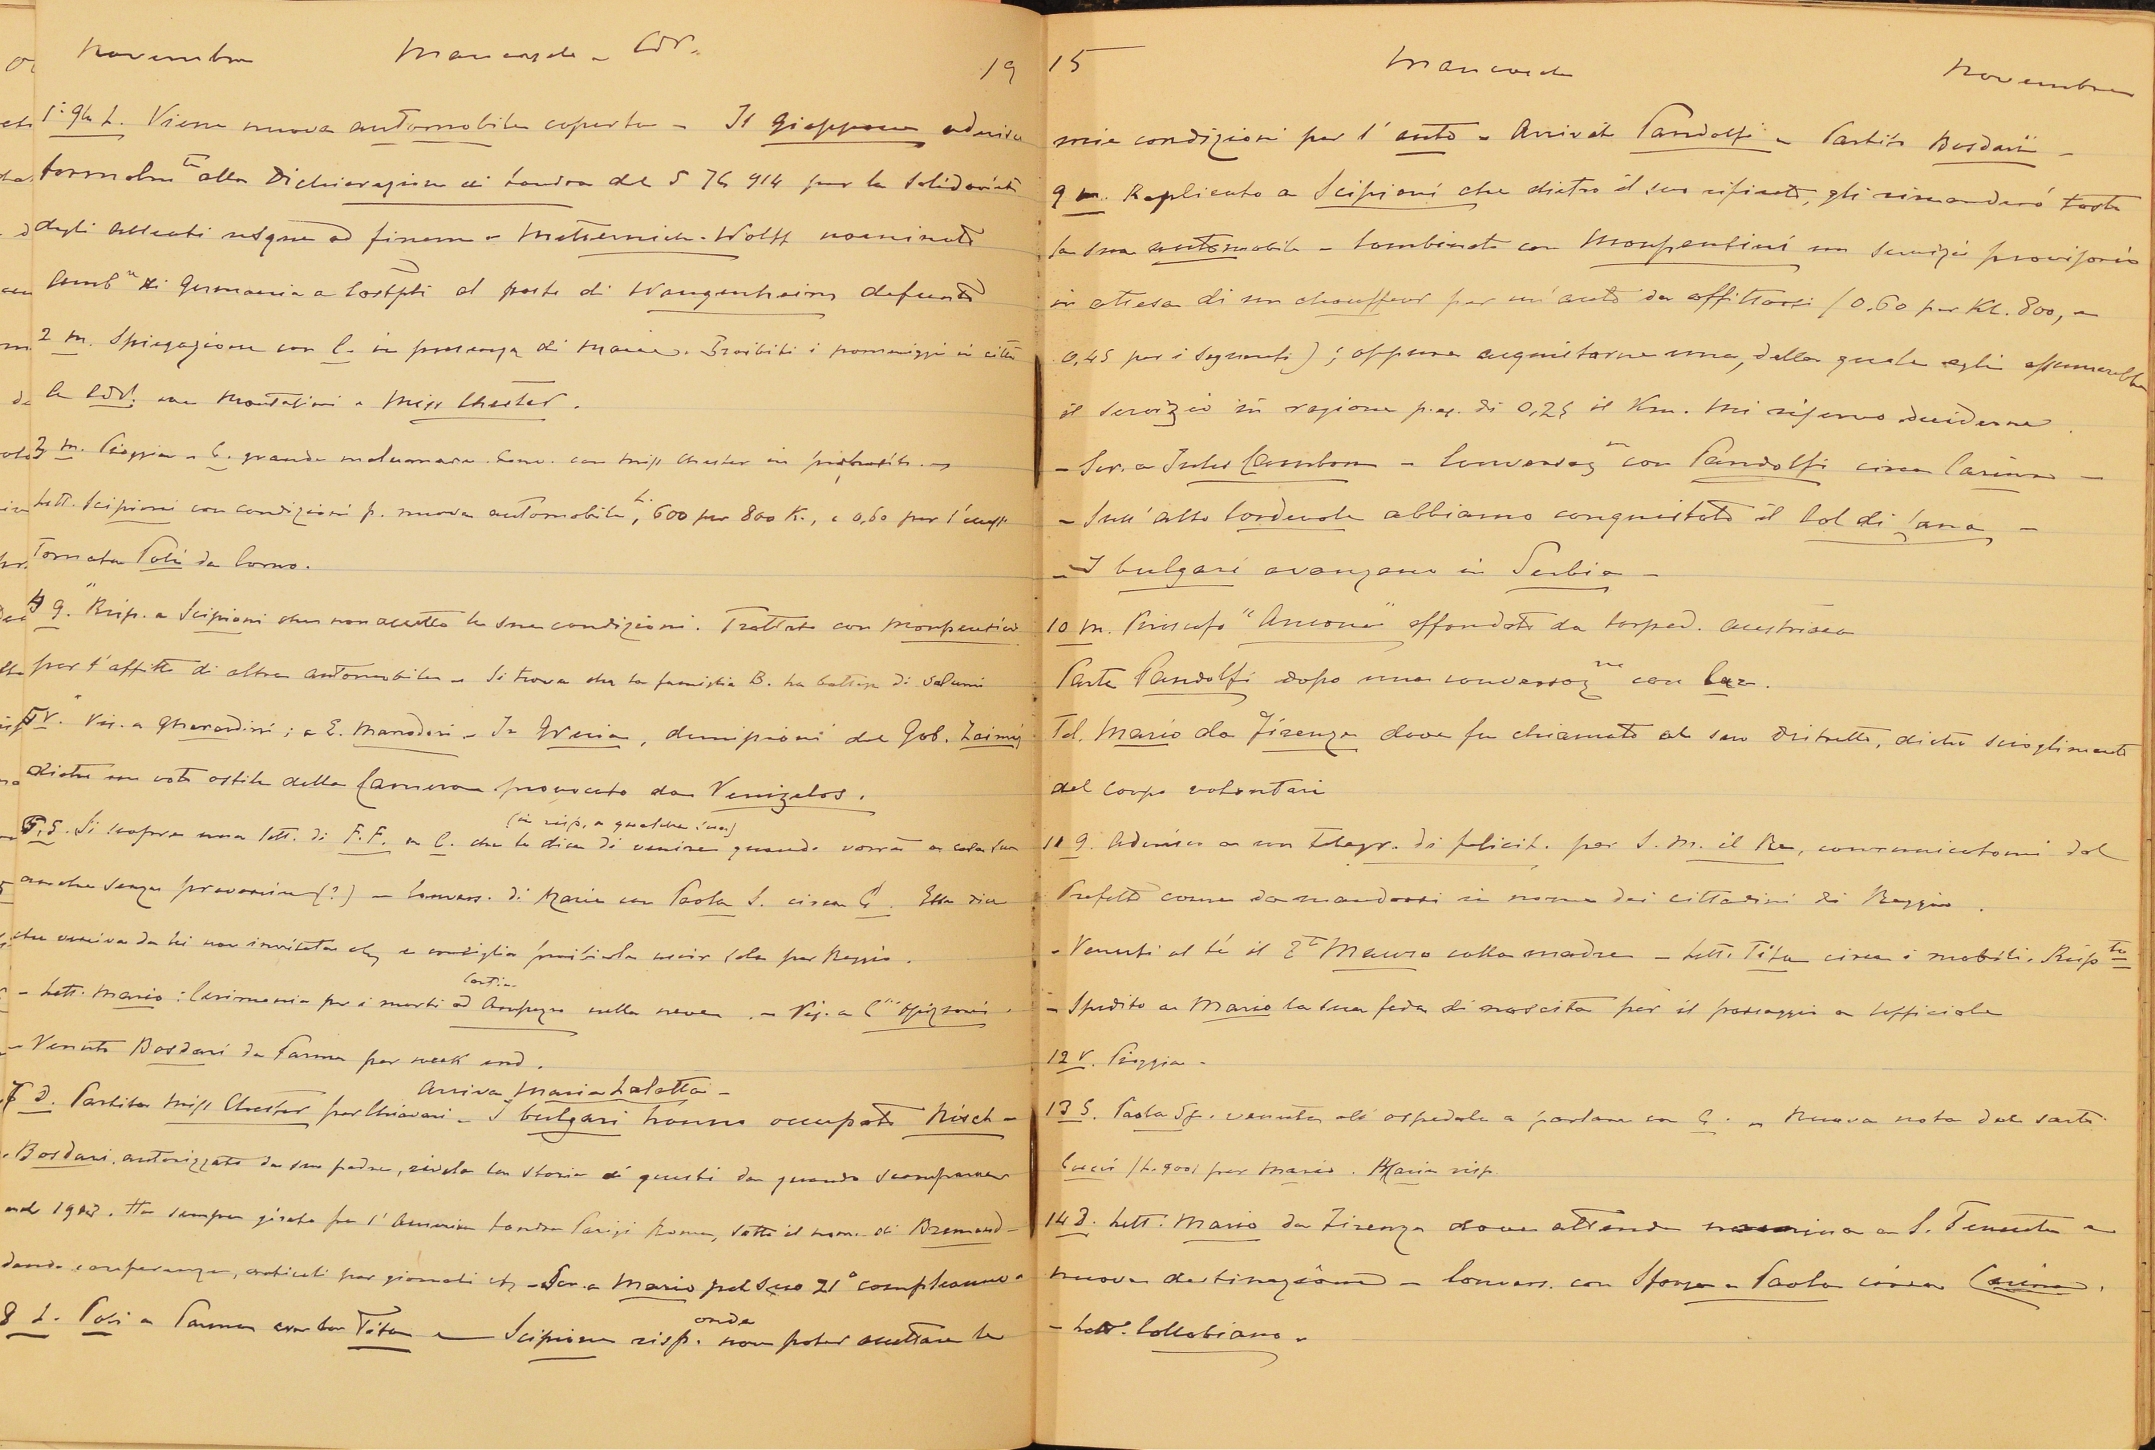 Novembre Mancasale - Cor. 19
1° gli L. Viene nuova automobile coperta - Il Giappone aderisce
formalmte alla Dichiarazione di Londra del 5 7b 914 per la solidarietà
degli alleati usque ad finem - Metternich-Wolff nominato
Ambr di Germania a Costpli al posto di Wangenheim defunto
2 m. Spiegazione con C. in presenza di Maria. Proibiti i pomeriggi in città
a Cor. con Montalini e Miss Chester.
3 m. Pioggia - C. grande malumore. Conv. con Miss Chester in proposito. -
Lett. Scipioni con condizioni p. nuova automobile, L. 600 per 800 K., e 0,60 per l'
Tornata Poli da Corno.
4 g. Risp. a Scipioni che non accetto le sue condizioni. Trattato con Monpentini
per l'affitto di altra automobile - Si trova che la famiglia B. ha bottega di salumi
5 V. Vis. a Gherardini; a E. Manodori - In Grecia, dimissioni del Gob. Zaimis
dietro un voto ostile della Camera provocato da Venizelos.
(in risp. a qualche sua)
6. S. Si scopre una lett. di F. F. a C. che le dice di venire quando vorrà a casa sua
anche senza prevenire (?) - Convers. di Maria con Paola S. circa C. Essa dice
che veniva da lei non invitata e consiglia proibirle uscir sola per Reggio.
Cortina
- Lett. Mario: Cerimonia per i morti ad Ampezzo nella neve. - Vis. a C Spizzoni.
- Venuto Bosdari da Parma per week end.
Arriva Maria Lalatta -
7 D. Partita Miss Chester per Chiavari - I bulgari hanno occupato Nisch -
- Bosdari, autorizzato da suo padre, rivela la storia di questi da quando scomparve
nel 19 . Ha sempre girato fra l'America Londra Parigi Roma, sotto il nome di Bremond
dando conferenze, articoli per giornali - Scr. a Mario pel suo 21° compleanno -
8 L. Poli a Parma con la Tita - Scipione risp. onde non poter accettare le
15 Mancasale Novembre
mie condizioni per l'auto - Arrivato Pandolfi - Partito Bosdari -
9 m. Replicato a Scipioni che dietro il suo rifiuto, gli rimanderò tosto
la sua automobile - Combinato con Monpentini un servizio provvisorio
in attesa di un chauffeur per un'auto da affittarsi (0,60 per Kl. 800, e
0,45 per i seguenti); oppure acquistarne una, della quale egli assumerebbe
il servizio in ragione p. es. di 0,25 il Km. Mi riservo decidere.
- Scr. a Jules Cambon - Conversazne con Pandolfi circa Carina -
- Sull'alto Cordevole abbiamo conquistato il Col di Lana -
- I bulgari avanzano in Serbia -
10 m. Piroscafo "Ancona" affondato da torped. austriaca
Parte Pandolfi dopo una conversazne con Car.
Tel. Mario da Firenze dove fu chiamato al suo Distretto, dietro scioglimento
del Corpo volontari
11 g. Aderisco a un telegr. di felicit. per S. M. il Re, comunicatomi dal
Prefetto come da mandarsi in nome dei cittadini di Reggio.
- Venuti al té il Mauro colla madre - Lett. Tita circa i mobili. Rispta
- Spedito a Mario la sua fede di nascita per il passaggio a ufficiale
12 V. Pioggia -
13 S. Paola Sf. venuta all'ospedale a parlare con C. - Nuova nota del sarto
Cucci (L. 900) per Mario. Maria risp.
14 D. Lett. Mario da Firenze dove attende nomina a S. Tenente e
nuova destinazione - Convers. con Sforza e Paola circa Carina.
- Lett. Collobiano -